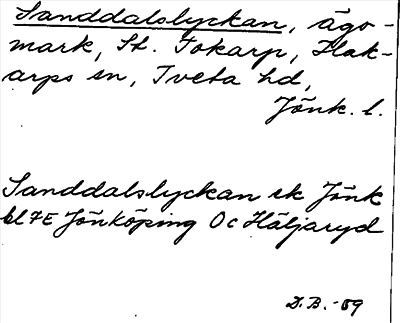 Sanddalslyckan, ägo-
mark, St. Tokarp, Hak-
arps sn, Tveta hd,
Jönk. l.
Sanddalslyckan ek Jönk
bl 7E Jönköping Oc Häljaryd
D.B. -59